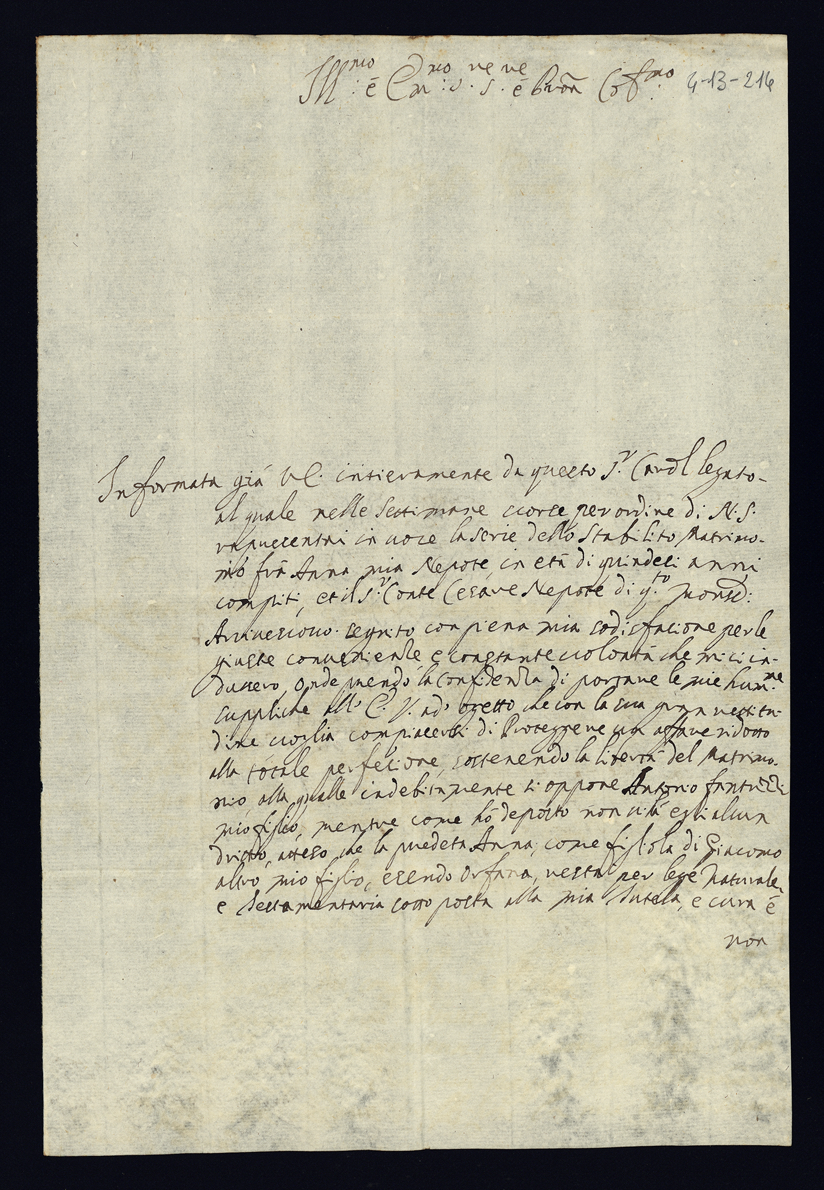 Ill.mo è E.mo Sig.re Sig.re è Pron Col.mo 4-13-216
Informata già V.E. intieramente da questo S.r Card.l legato
al quale nelle settimane scorse per ordine di N.S.
rapresentai in voce la serie dello stabilito Matrimo-
nio frà Anna mia Nepote, in età di quindeci anni
compiti, et il S.r Conte Cesare Nepote di q.to Mons.:
seguito con piena mia sodisfacione per le
giuste convenienze e constante volontà che mi ci in-
dussero, onde prendo la confidenza di portare le mie hum.me
suppliche all' E.V. ad' ogetto che con la sua gran rettitu-
dine voglia compiacersi di Proteggere un affare ridotto
alla totale perfecione, sostenendo la libertà del Matrimo-
nio alla qualle indebitamente si oppone Antonio fantuzzi
mio figlio, mentre come hò deposto non vi hà egli alcun
dritto, atteso che la predeta Anna, come figliola di Giacomo
altro mio figlio, esendo Orfana, resta per lege naturale,
e Testamentaria sotto posta alla mia Tutela, e cura è
non